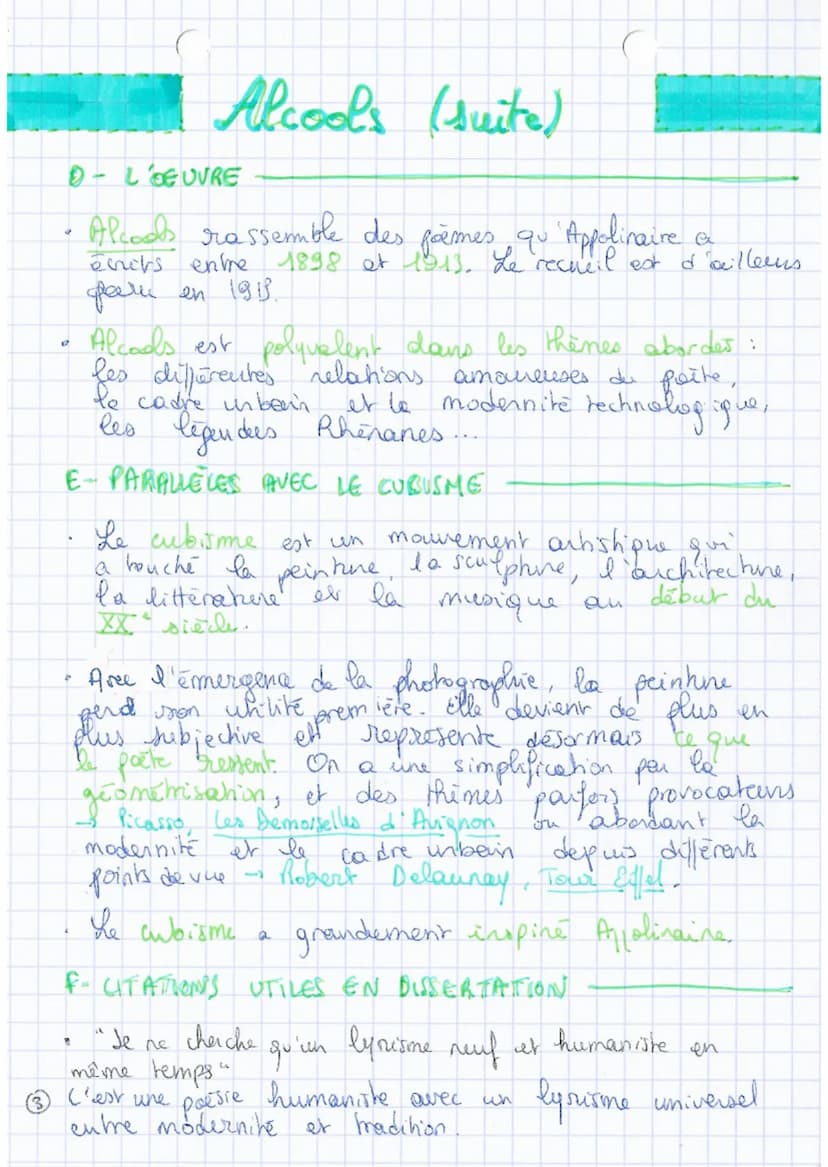 Alcools (suite)
D - L'OEUVRE
• Alcools rassemble des poèmes qu'Appolinaire a
écrits entre 1898 et 1913. Le recueil est d'ailleurs
paru en 1913.
• Alcools est polyvalent dans les thèmes abordés :
les différentes relations amoureuses du poète,
le cadre urbain et la modernité technologique,
les légendes Rhénanes...
E - PARALLÈLES AVEC LE CUBISME
• Le cubisme est un mouvement artistique qui
a touché la peinture, la sculpture, l'architecture,
la littérature et la musique au début du
XXe siècle.
• Avec l'émergence de la photographie, la peinture
perd son utilité première. Elle devient de plus en
plus subjective et représente désormais ce que
le poète ressent. On a une simplification par la
géométrisation, et des thèmes parfois provocateurs
→ Picasso, Les Demoiselles d'Avignon ou abordant la
modernité et le cadre urbain depuis différents
points de vue → Robert Delaunay, Tour Eiffel.
• Le cubisme a grandement inspiré Appolinaire.
F - CITATIONS UTILES EN DISSERTATION
• "Je ne cherche qu'un lyrisme neuf et humaniste en
même temps"
③ C'est une poésie humaniste avec un lyrisme universel
entre modernité et tradition.